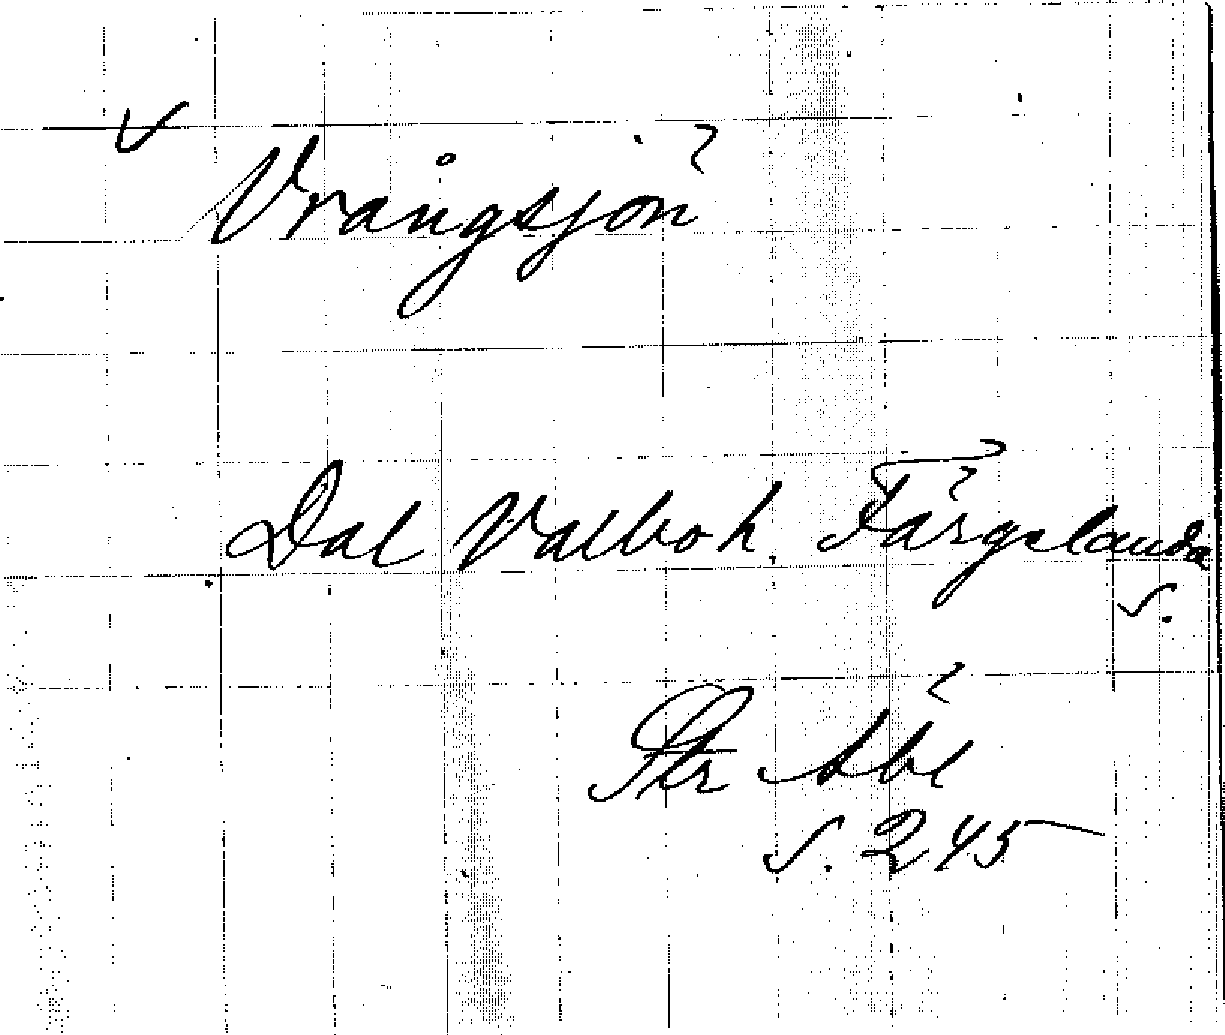 ✓
Vrångsjön
Dal Valbo h. Färgelanda
s.
Str Abl
s. 245